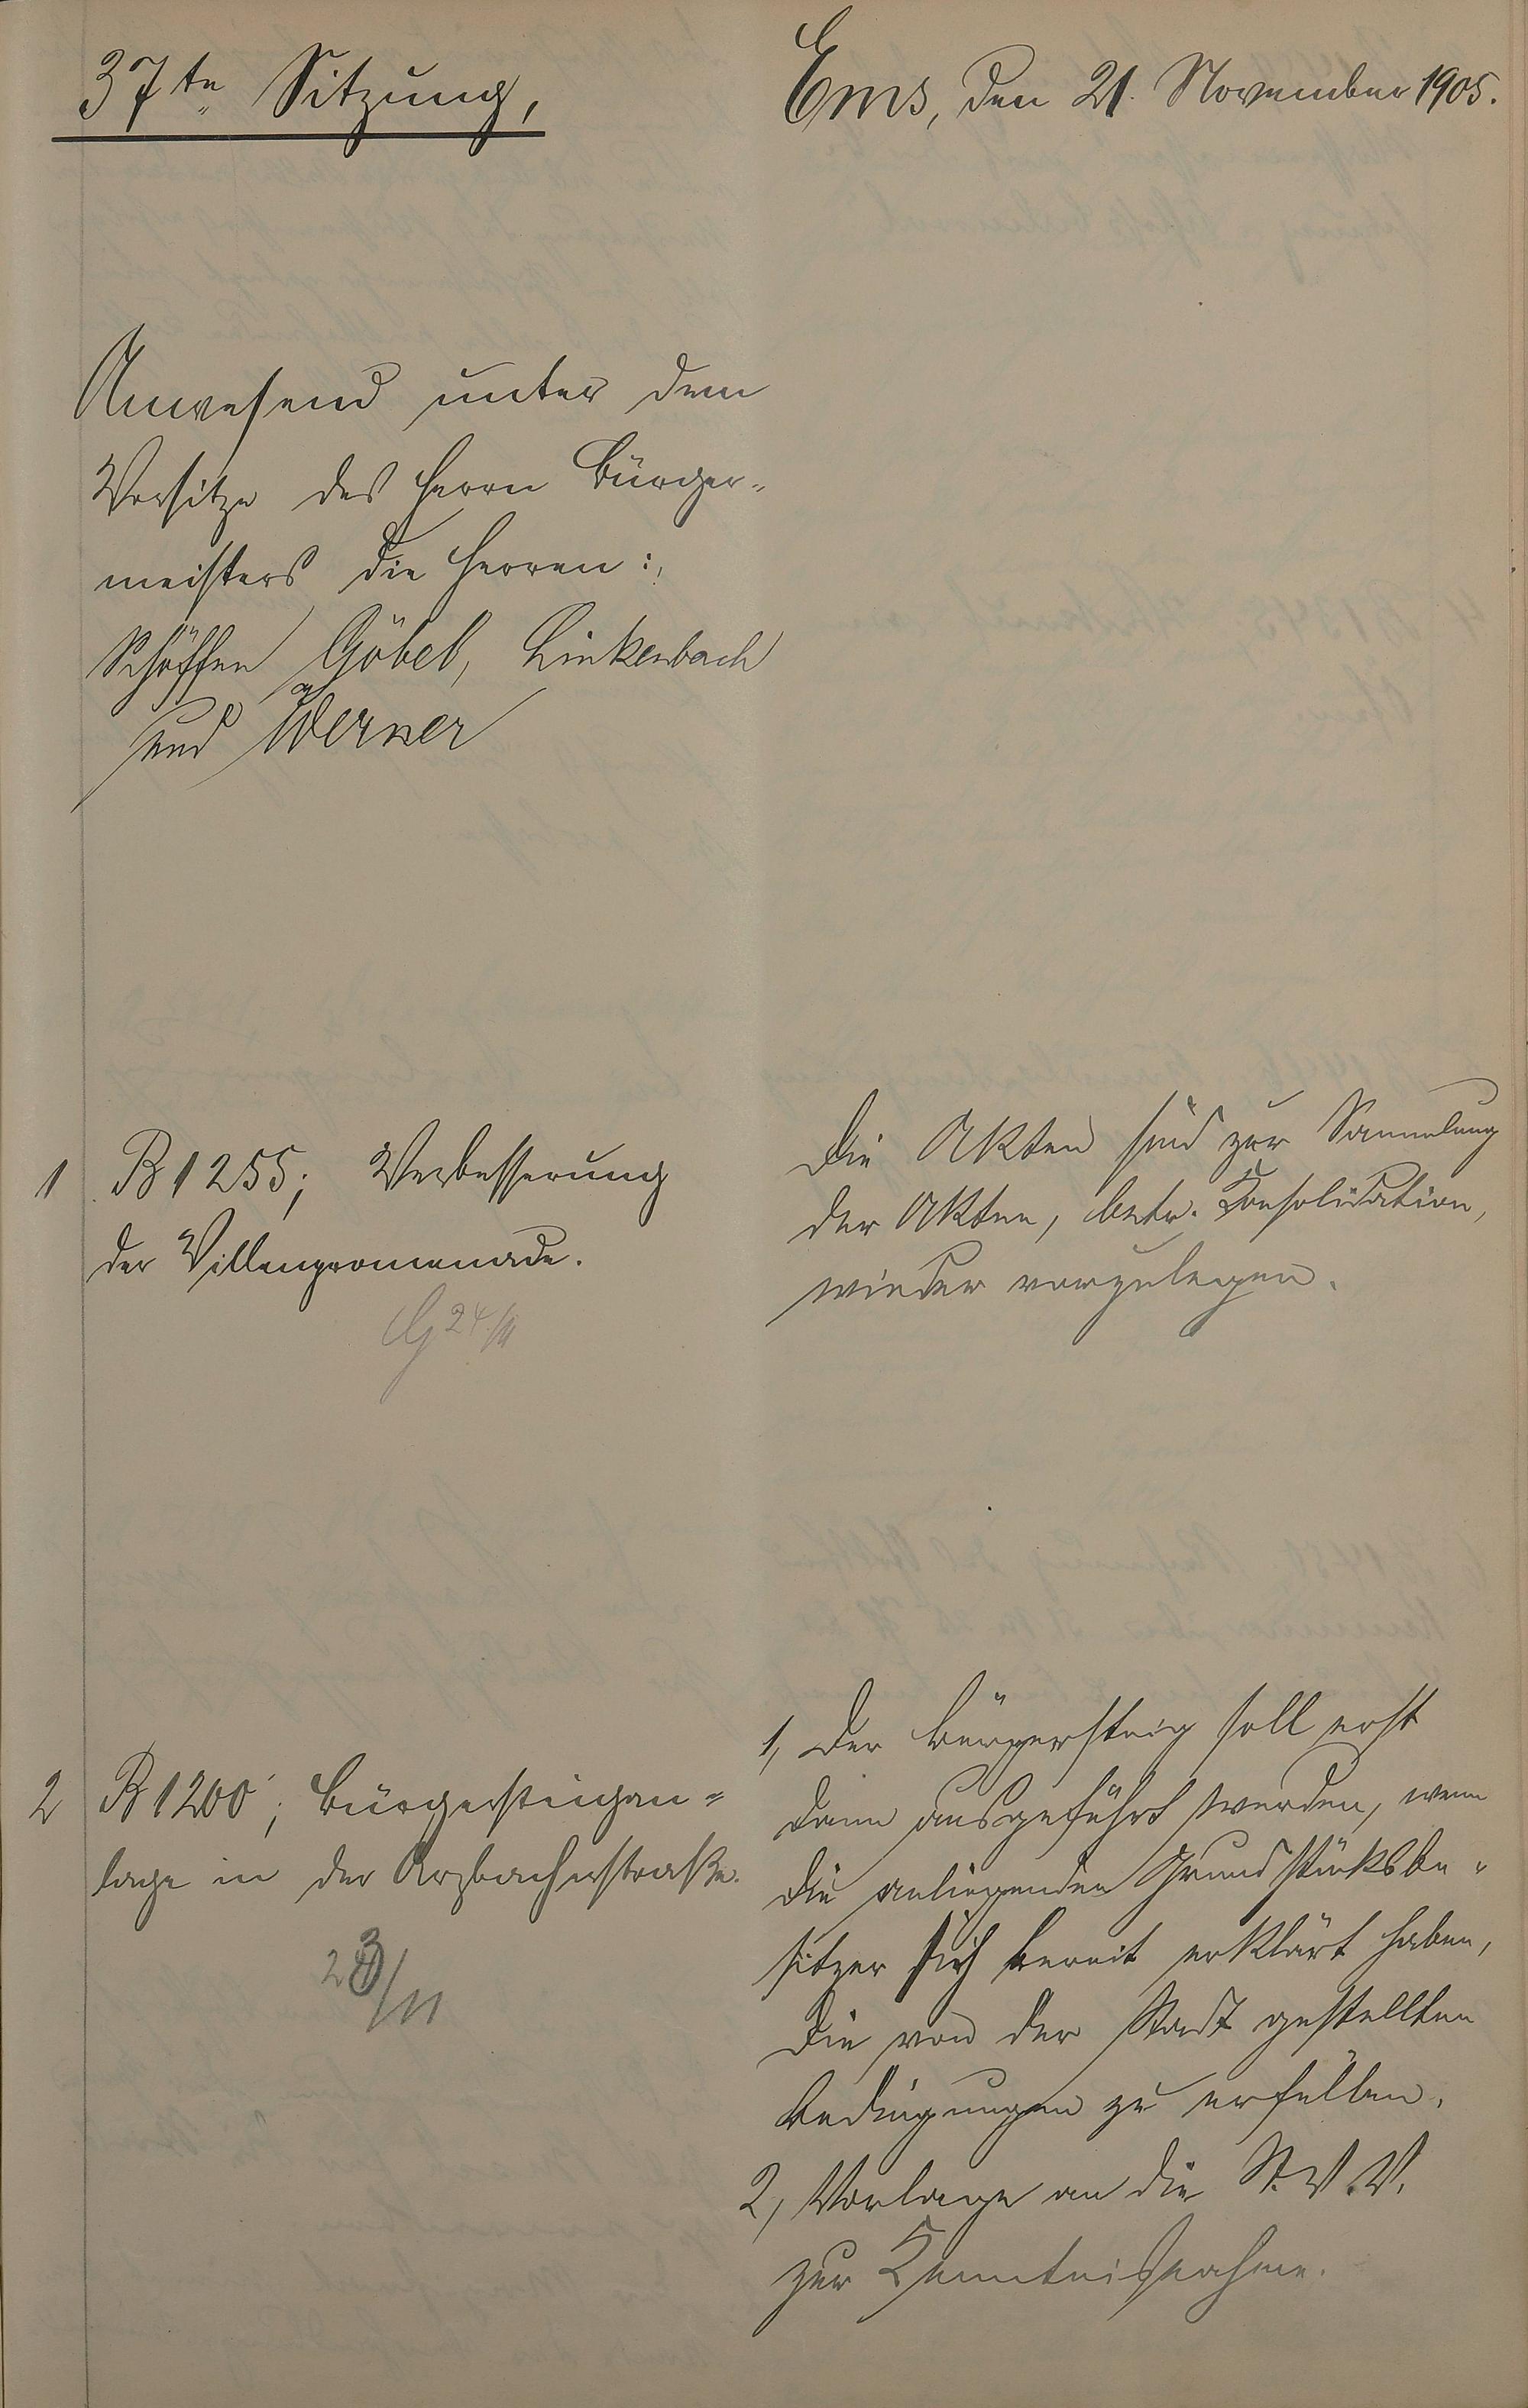 37te Sitzung,
Ems, den 21. November 1905.
Anwesend unter dem
Vorsitze des Herrn Bürger-
meisters die Herren:
Schöffen Göbel, Linkenbach
und Werner
1 B 1255; Verbesserung
der Villenpromenade.
24/11
Die Akten sind zur Sammlung
der Akten, betr. Konsolidation,
wieder vorzulegen.
2 B 1200; Bürgersteigan-
lage in der Arzbacherstraße.
23/11
1, Der Bürgersteig soll erst
dann ausgeführt werden, wenn
die anliegenden Grundstücksbe-
sitzer sich bereit erklärt haben,
die von der Stadt gestellten
Bedingungen zu erfüllen.
2, Vorlage an die St. V. V.
zur Kenntnisnahme.